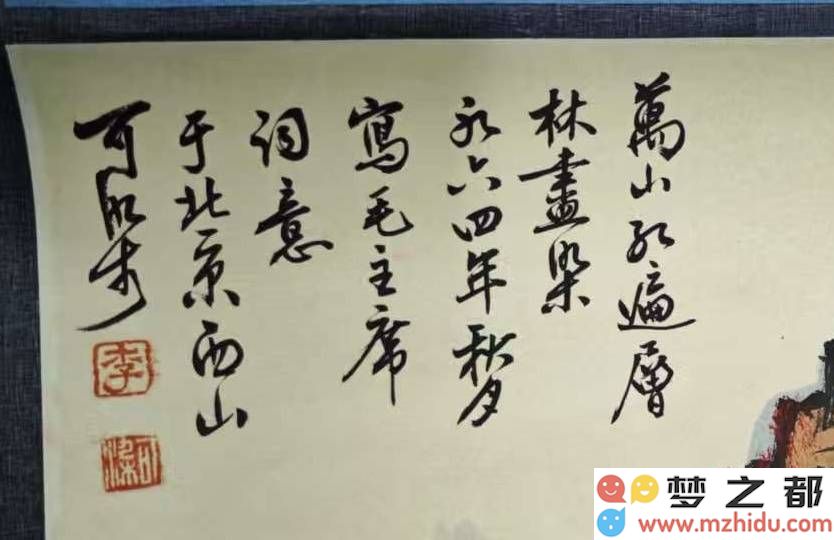 萬山紅遍層
林盡染
一九六四年秋月
寫毛主席
詞意
于北京西山
可染
李
可染
梦之都
www.mzhidu.com